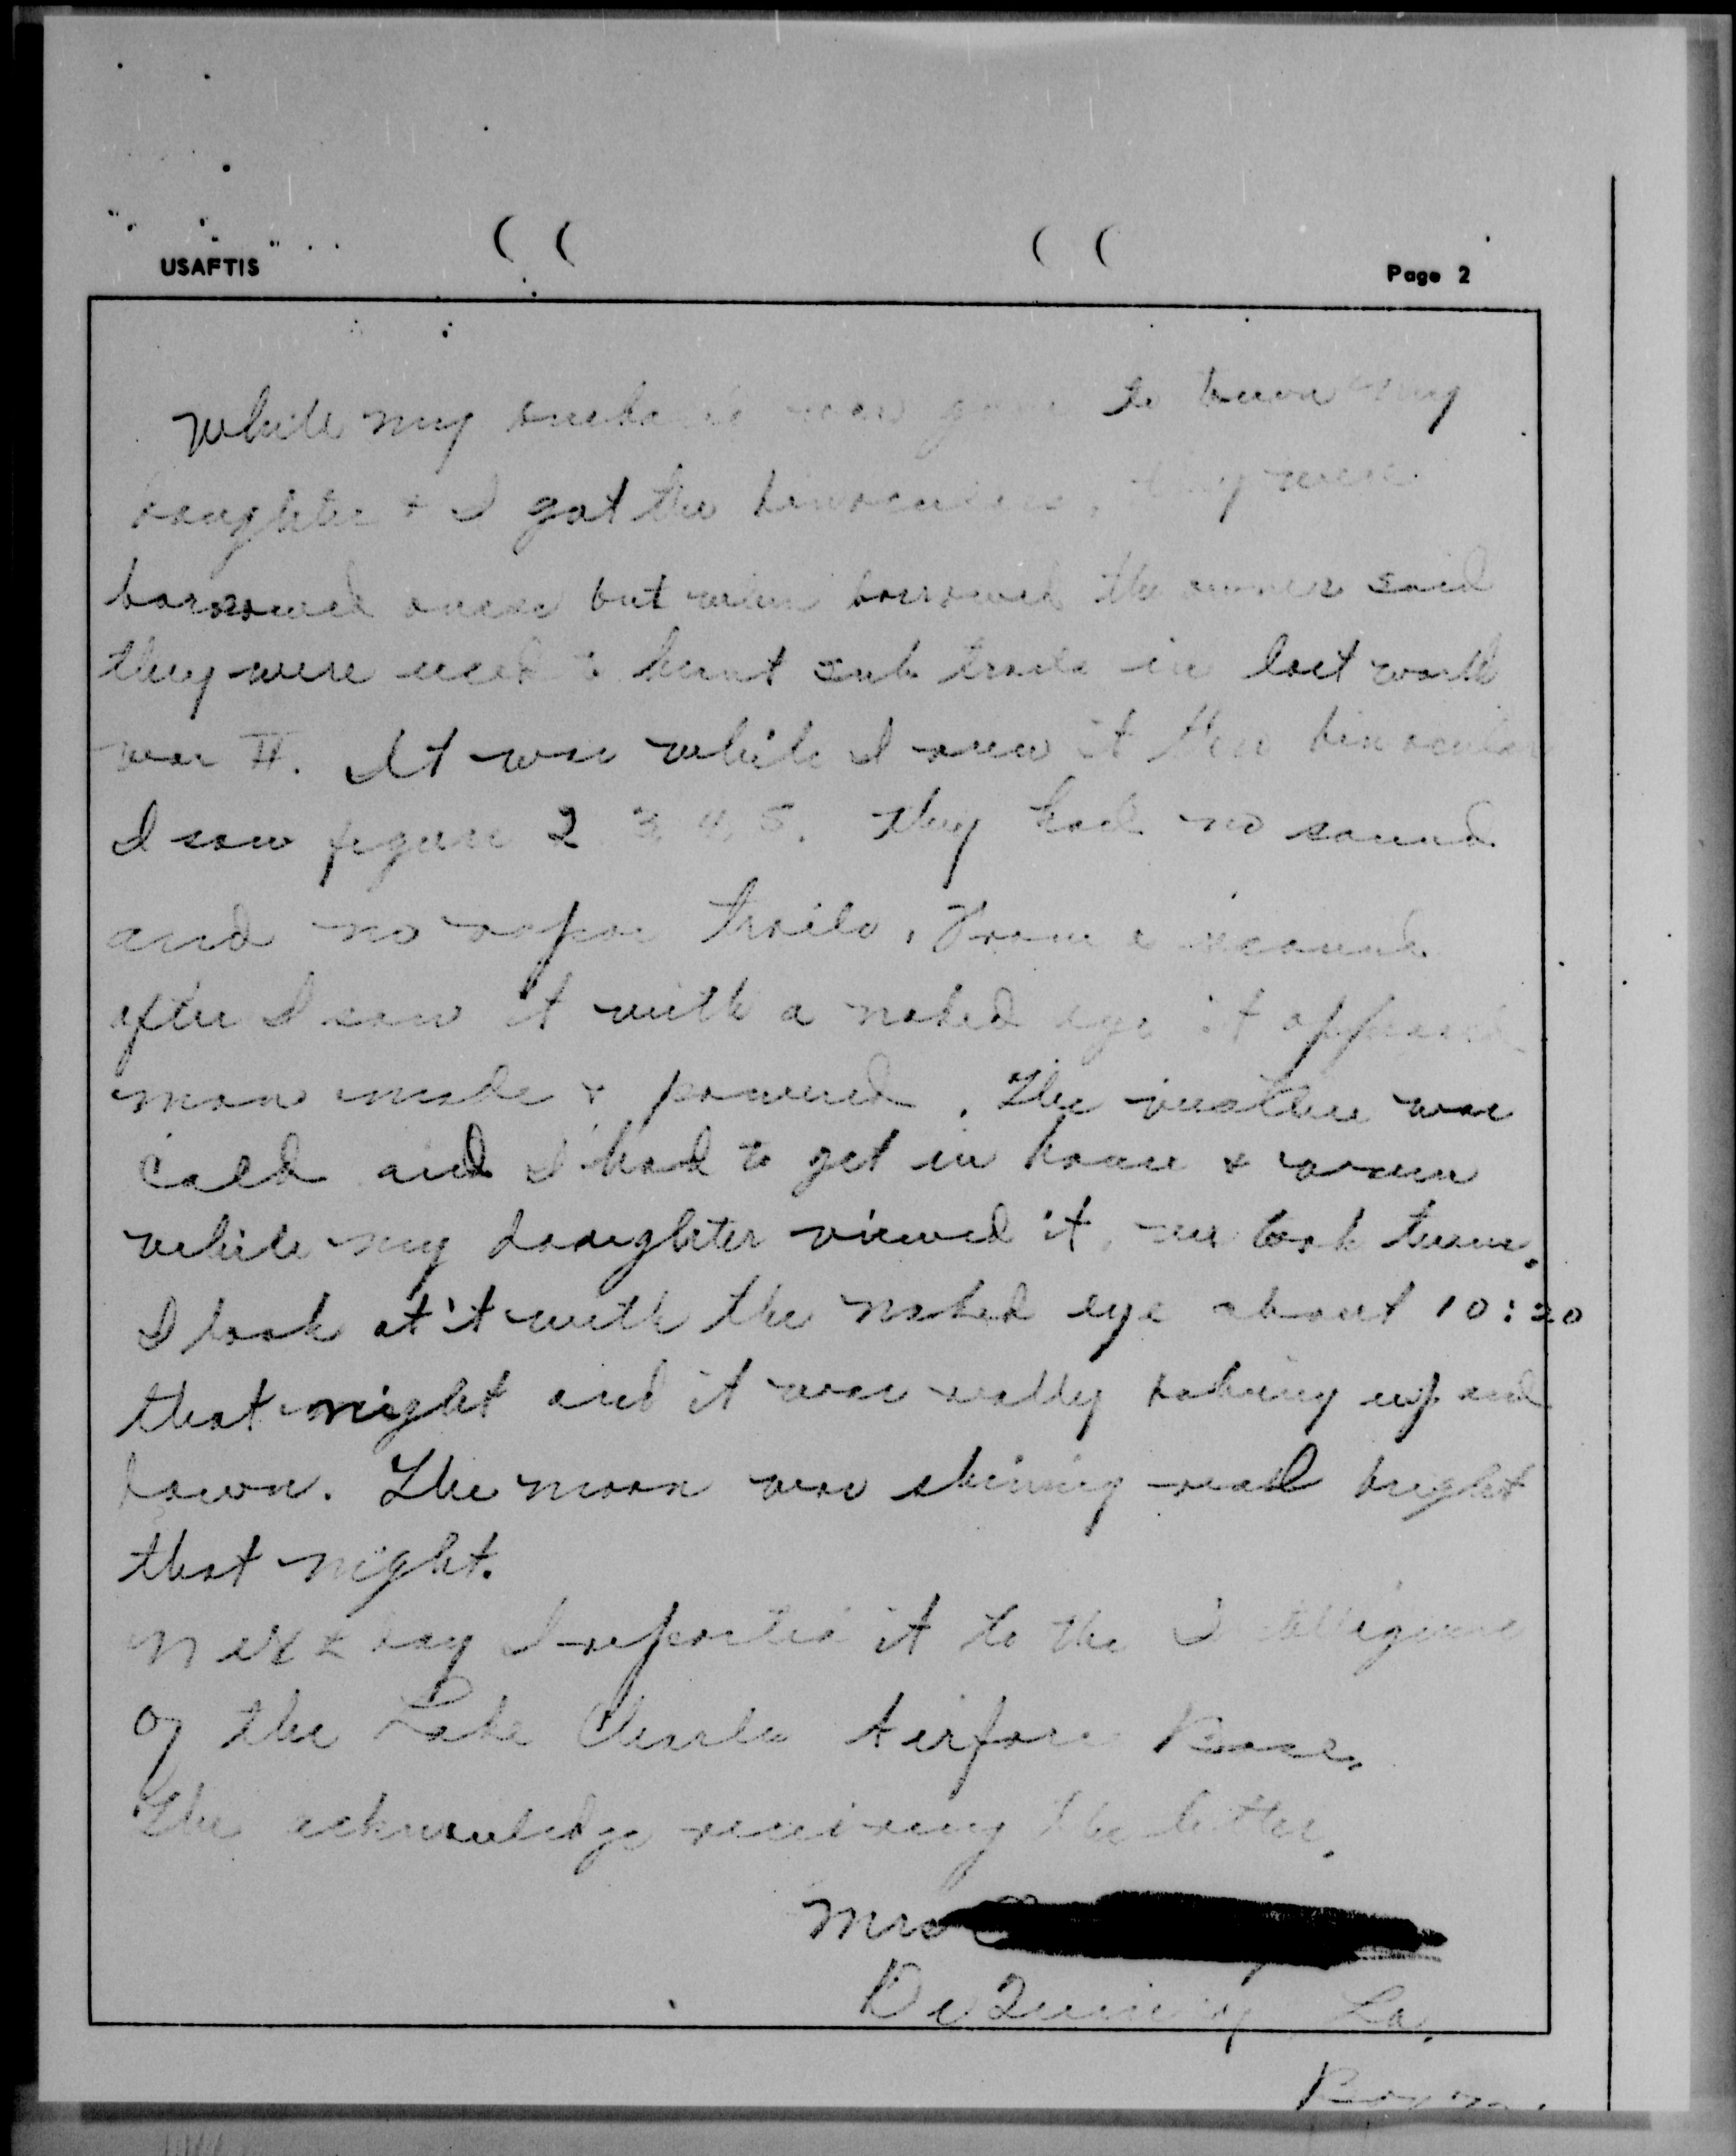 USAFTIS
Page 2
While my husband was gone to town my
daughter & I got the binoculars, they were
borrowed ones but when borrowed the owner said
they were used to hunt sub trails in last world
war II. It was while I view it thru binocular
I saw figure 2 3 4 5. They had no sound
and no vapor trails. From a second
after I saw it with a naked eye it appeared
man made & powered. The weather was
cold and I had to get in house & warm
while my daughter viewed it, we took turns.
I look at it with the naked eye about 10:20
that night and it was really bobing up and
down. The moon was shining real bright
that night.
Next day I reported it to the Intelligence
of the Lake Charles Airforce Base.
The acknowledge receiving the letter.
Mrs
DeQuincy, La.
Box